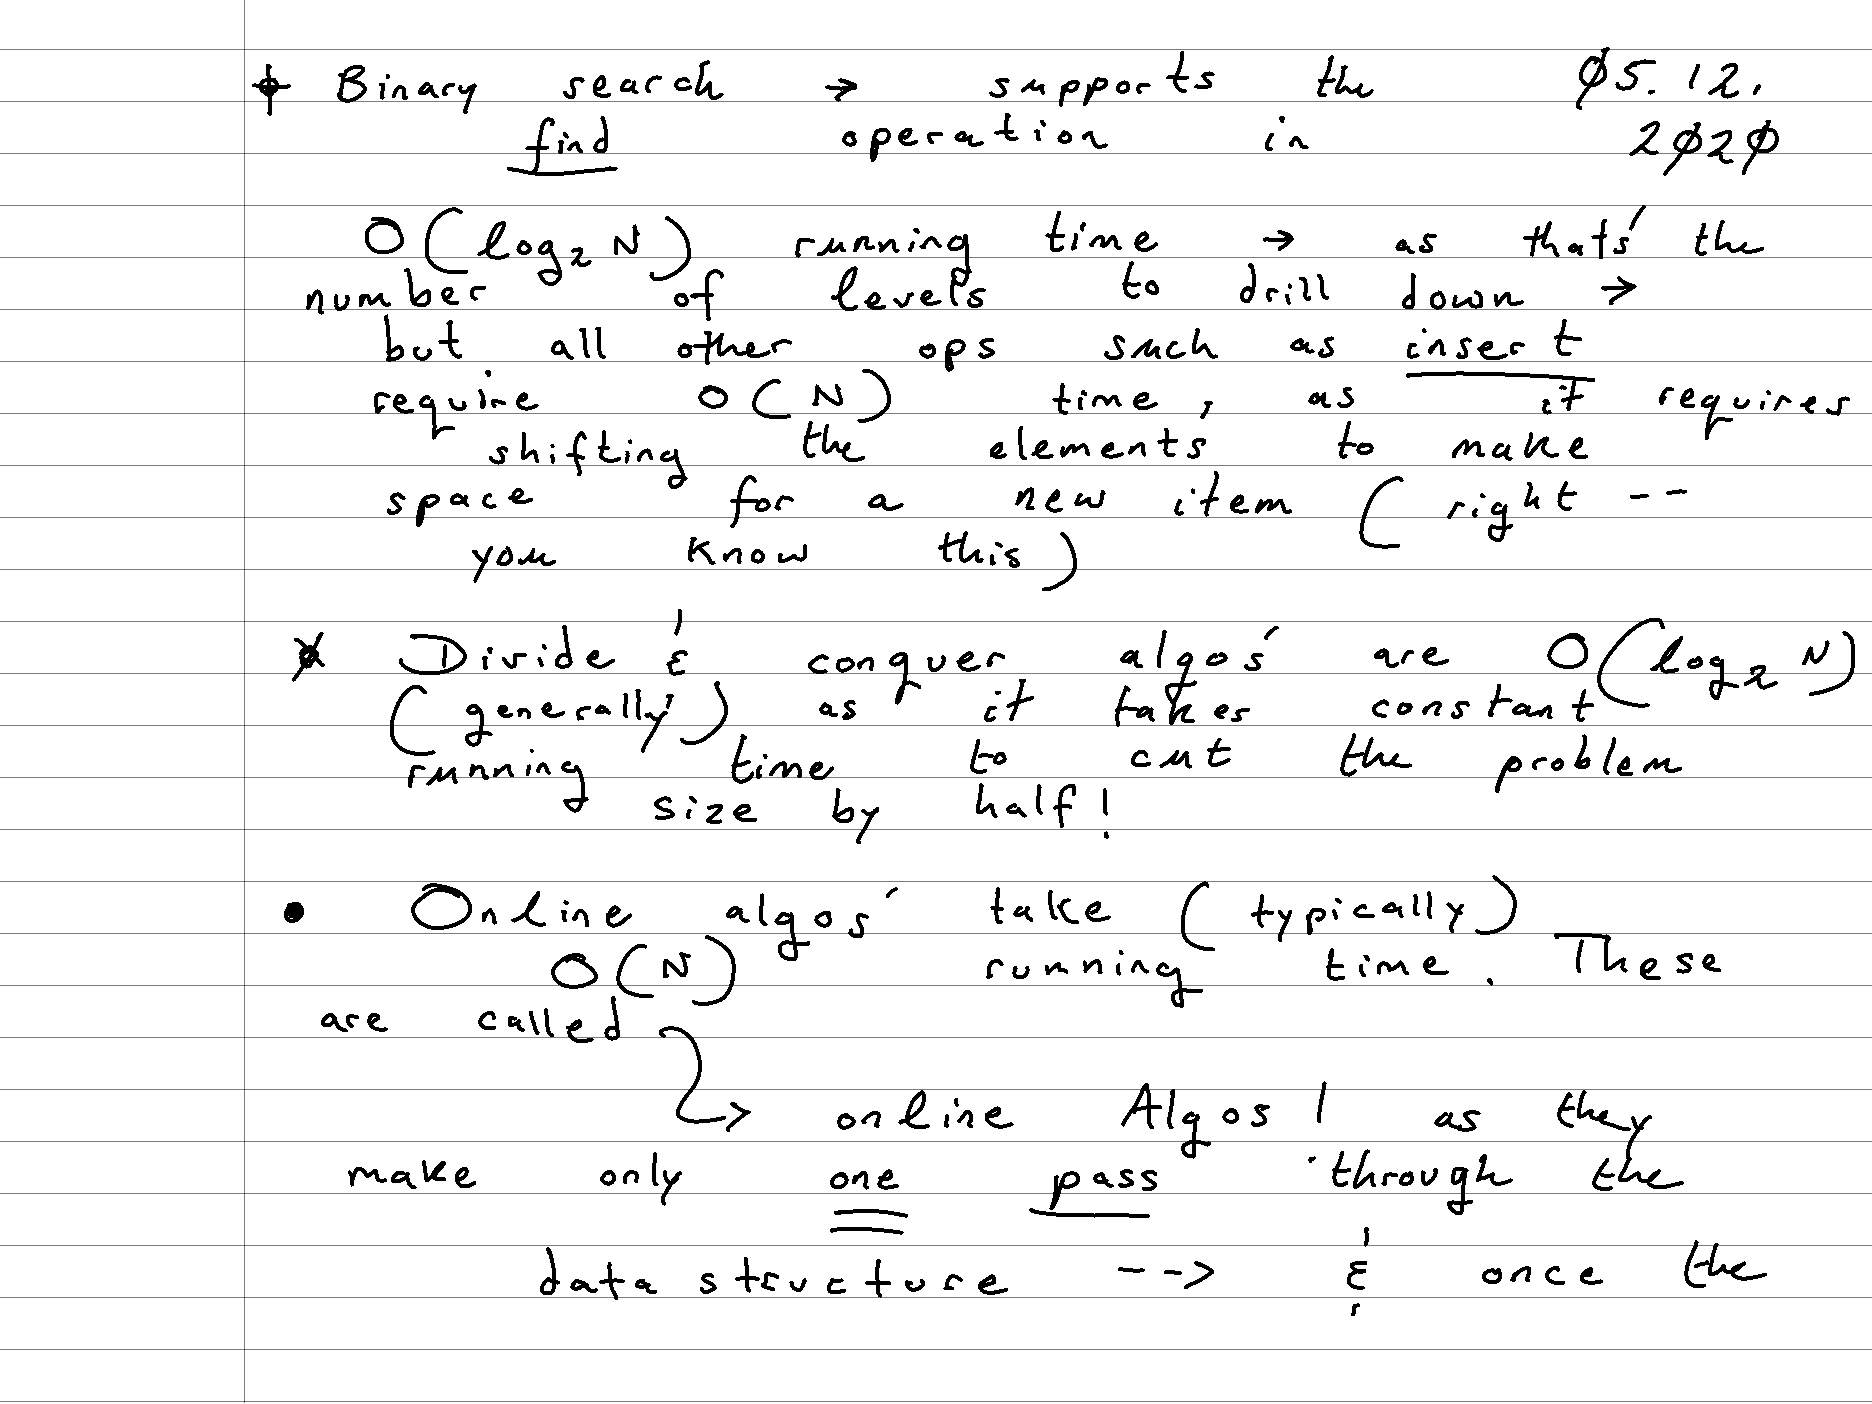 Binary search → supports the ø5.12.
find operation in 2ø2ø
O(log₂ N) running time → as thats' the
number of levels to drill down →
but all other ops such as insert
require O(N) time, as it requires
shifting the elements to make
space for a new item (right --
you know this)
Divide & conquer algos' are O(log₂ N)
(generally) as it takes constant
running time to cut the problem
size by half!
• Online algos' take (typically)
O(N) running time. These
are called
→ online Algos! as they
make only one pass through the
data structure --> & once the